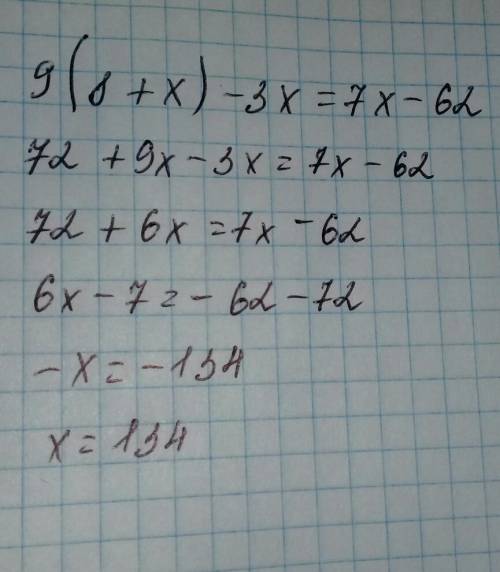 9(8 + x) - 3x = 7x - 62
72 + 9x - 3x = 7x - 62
72 + 6x = 7x - 62
6x - 7 = - 62 - 72
- x = - 134
x = 134